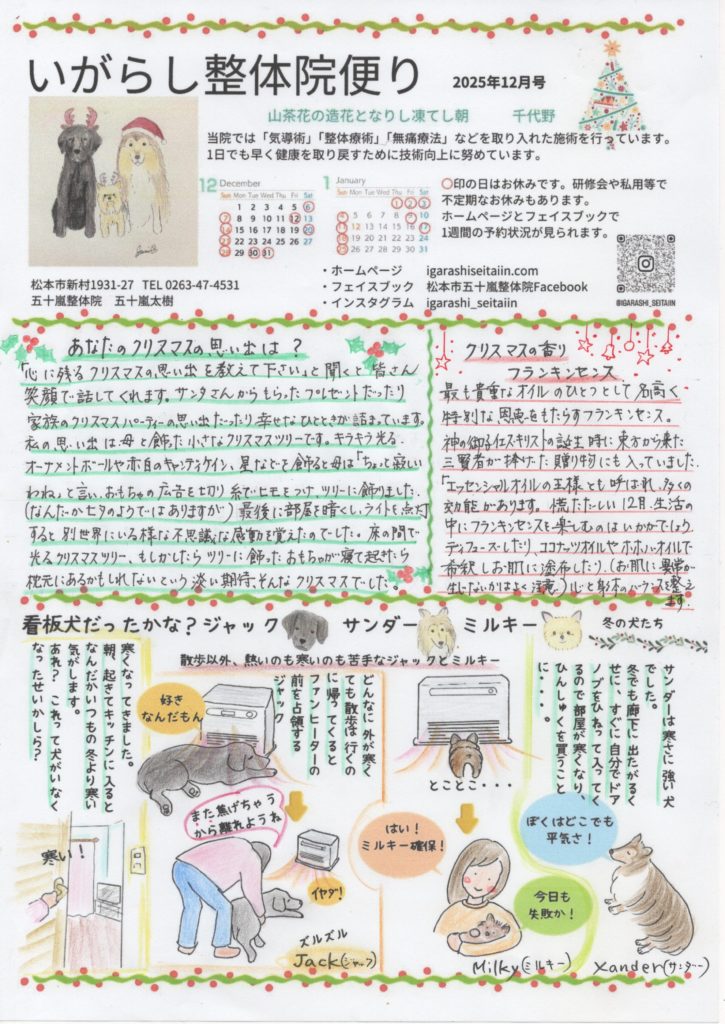 いがらし整体院便り 2025年12月号
山茶花の造花となりし凍てし朝 千代野
当院では「気導術」「整体療術」「無痛療法」などを取り入れた施術を行っています。
1日でも早く健康を取り戻すために技術向上に努めています。
12 December
Sun Mon Tue Wed Thu Fri Sat
1 2 3 4 5 6
7 8 9 10 11 12 13
14 15 16 17 18 19 20
21 22 23 24 25 26 27
28 29 30 31
1 January
Sun Mon Tue Wed Thu Fri Sat
1 2 3
4 5 6 7 8 9 10
11 12 13 14 15 16 17
18 19 20 21 22 23 24
25 26 27 28 29 30 31
○印の日はお休みです。研修会や私用等で
不定期なお休みもあります。
ホームページとフェイスブックで
1週間の予約状況が見られます。
松本市新村1931-27 TEL 0263-47-4531
五十嵐整体院 五十嵐太樹
・ホームページ igarashiseitaiin.com
・フェイスブック 松本市五十嵐整体院Facebook
・インスタグラム igarashi_seitaiin
@IGARASHI_SEITAIIN
あなたのクリスマスの思い出は?
「心に残るクリスマスの思い出を教えて下さい」と聞くと皆さん
笑顔で話してくれます。サンタさんからもらったプレゼントだったり
家族のクリスマスパーティーの思い出だったり幸せなひとときが詰まっています。
私の思い出は母と飾った小さなクリスマスツリーです。キラキラ光る
オーナメントボールや赤白のキャンディケイン、星などを飾ると母は「ちょっと寂しい
わね」と言い、おもちゃの広告を切り糸でヒモをつけ、ツリーに飾りました。
(なんだか七夕のようではありますが)最後に部屋を暗くし、ライトを点灯
すると別世界にいる様な不思議な感動を覚えたのでした。床の間で
光るクリスマスツリー、もしかしたらツリーに飾ったおもちゃが寝て起きたら
枕元にあるかもしれないという淡い期待、そんなクリスマスでした。
クリスマスの香り
フランキンセンス
最も貴重なオイルのひとつとして名高く
特別な恩恵をもたらすフランキンセンス。
神の御子イエスキリストの誕生時に東方から来た
三賢者が捧げた贈り物にも入っていました。
「エッセンシャルオイルの王様とも呼ばれ、多くの
効能があります。慌ただしい12月、生活の
中にフランキンセンスを楽しむのはいかがでしょう。
ディフューズしたり、ココナッツオイルやホホバオイルで
希釈しお肌に塗布したり、(お肌に異常が
生じないかはよく注意)心と身体のバランスを整え
ます。
看板犬だったかな?ジャック サンダー ミルキー 冬の犬たち
散歩以外、熱いのも寒いのも苦手なジャックとミルキー
サンダーは寒さに強い犬
でした。
冬でも廊下に出たがるく
せに、すぐに自分でドア
ノブをひねって入ってく
るので部屋が寒くなり、
ひんしゅくを買うこと
に・・・・。
とことこ・・・
どんなに外が寒く
ても散歩は行くの
に帰ってくると
ファンヒーターの
前を占領する
ジャック
好き
なんだもん
寒くなってきました。
朝、起きてキッチンに入ると
なんだかいつもの冬より寒い
気がします。
あれ?これって犬がいなく
なったせいかしら?
寒い!
また焦げちゃう
から離れようね
イヤダ!
ズルズル
Jack(ジャック)
はい!
ミルキー確保!
今日も
失敗か!
Milky(ミルキー)
ぼくはどこでも
平気さ!
Xander(サンダー)